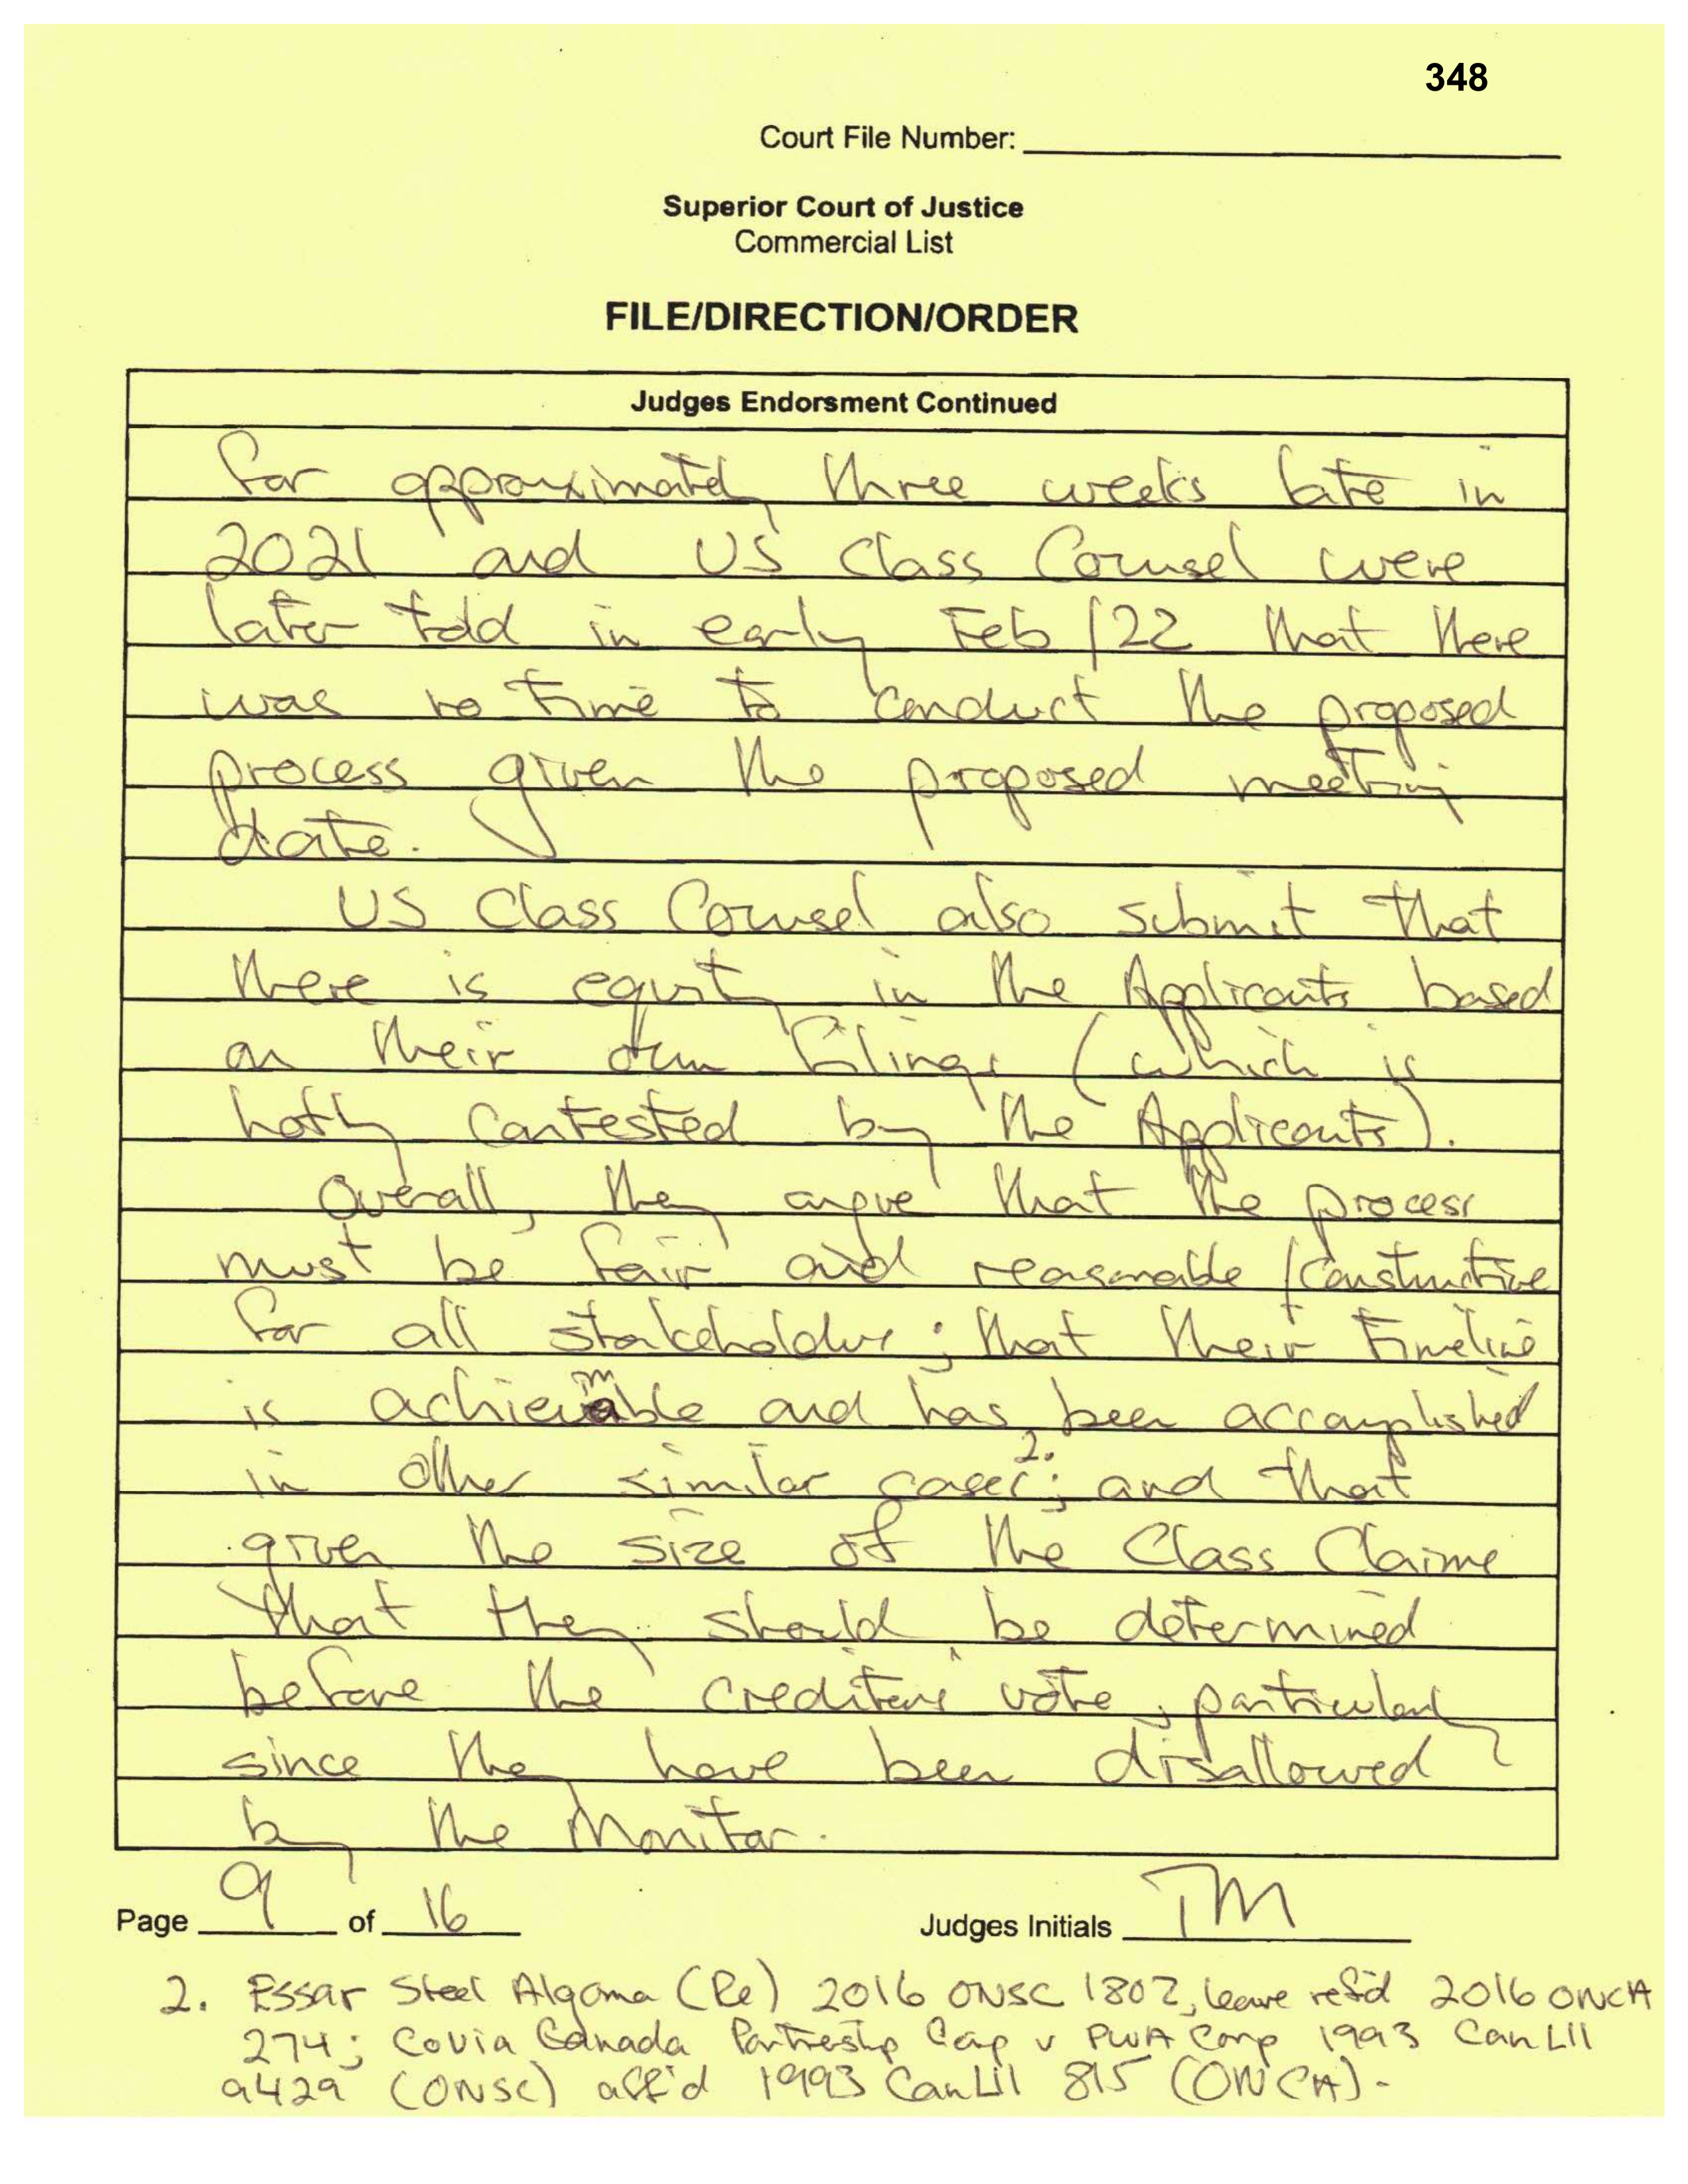 348
Court File Number:
Superior Court of Justice
Commercial List
FILE/DIRECTION/ORDER
Judges Endorsment Continued
for approximately three weeks late in
2021 and US Class Counsel were
later told in early Feb/22 that there
was no time to conduct the proposed
process given the proposed meeting
date.
US Class Counsel also submit that
there is equity in the Applicants based
on their own filings (which is
hotly contested by the Applicants).
Overall, they argue that the process
must be fair and reasonable/constructive
for all stakeholders; that their timeline
is achievable and has been accomplished
in other similar cases 2.; and that
given the size of the Class Claims
that they should be determined
before the creditors' vote, particularly
since they have been disallowed
by the Monitor.
Page 9 of 16 Judges Initials TM
2. Essar Steel Algoma (Re) 2016 ONSC 1802, leave ref'd 2016 ONCA
274; Covia Canada Partnership Corp v PWA Corp 1993 CanLII
9429 (ONSC) aff'd 1993 CanLII 815 (ONCA).